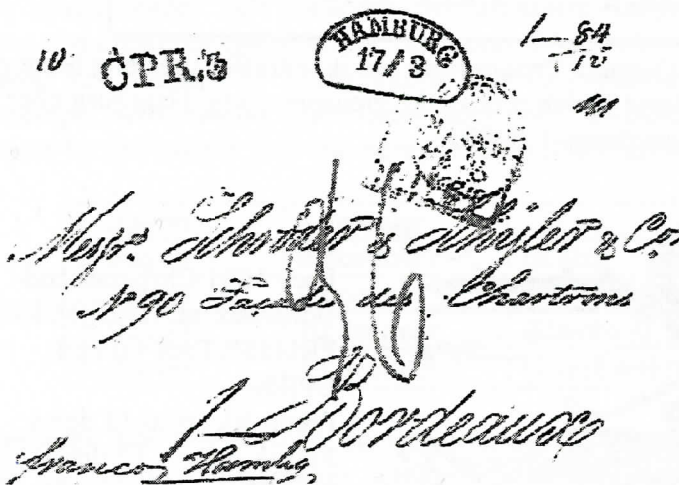 10 CPR.3
HAMBURG
17/3
84
12
Messrs. Schröder & Schÿler & Co.
No 90 Façade des Chartrons
Bordeaux
franco Hambg